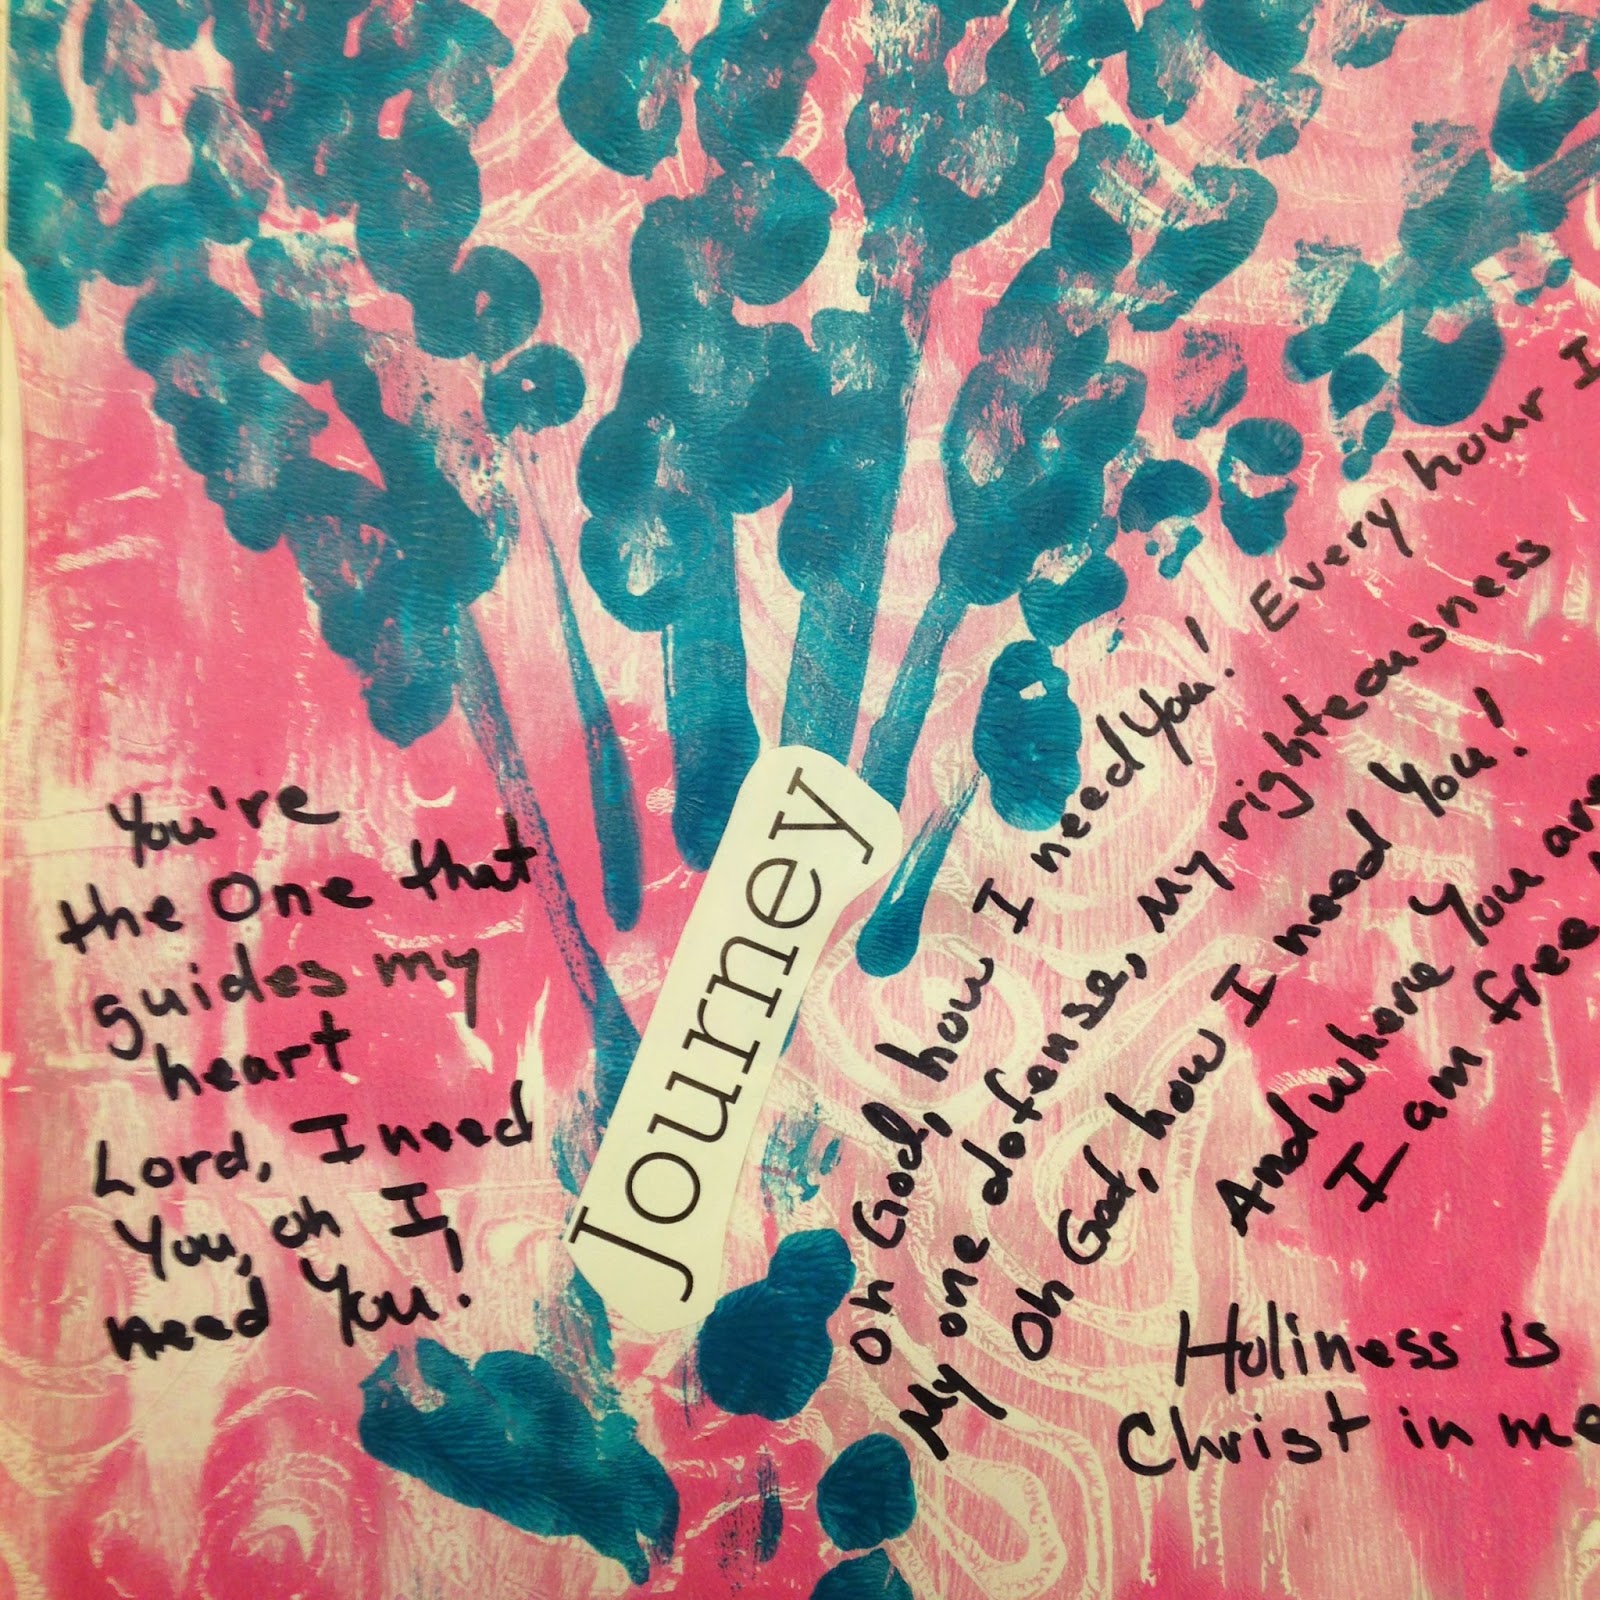 You're
the One that
guides my
heart
Lord, I need
You, oh I,
need You!
Journey
Oh God, how I need You! Every hour I
My one defense, My righteousness
Oh God, how I need You!
And where You are
I am free
Holiness is
Christ in me